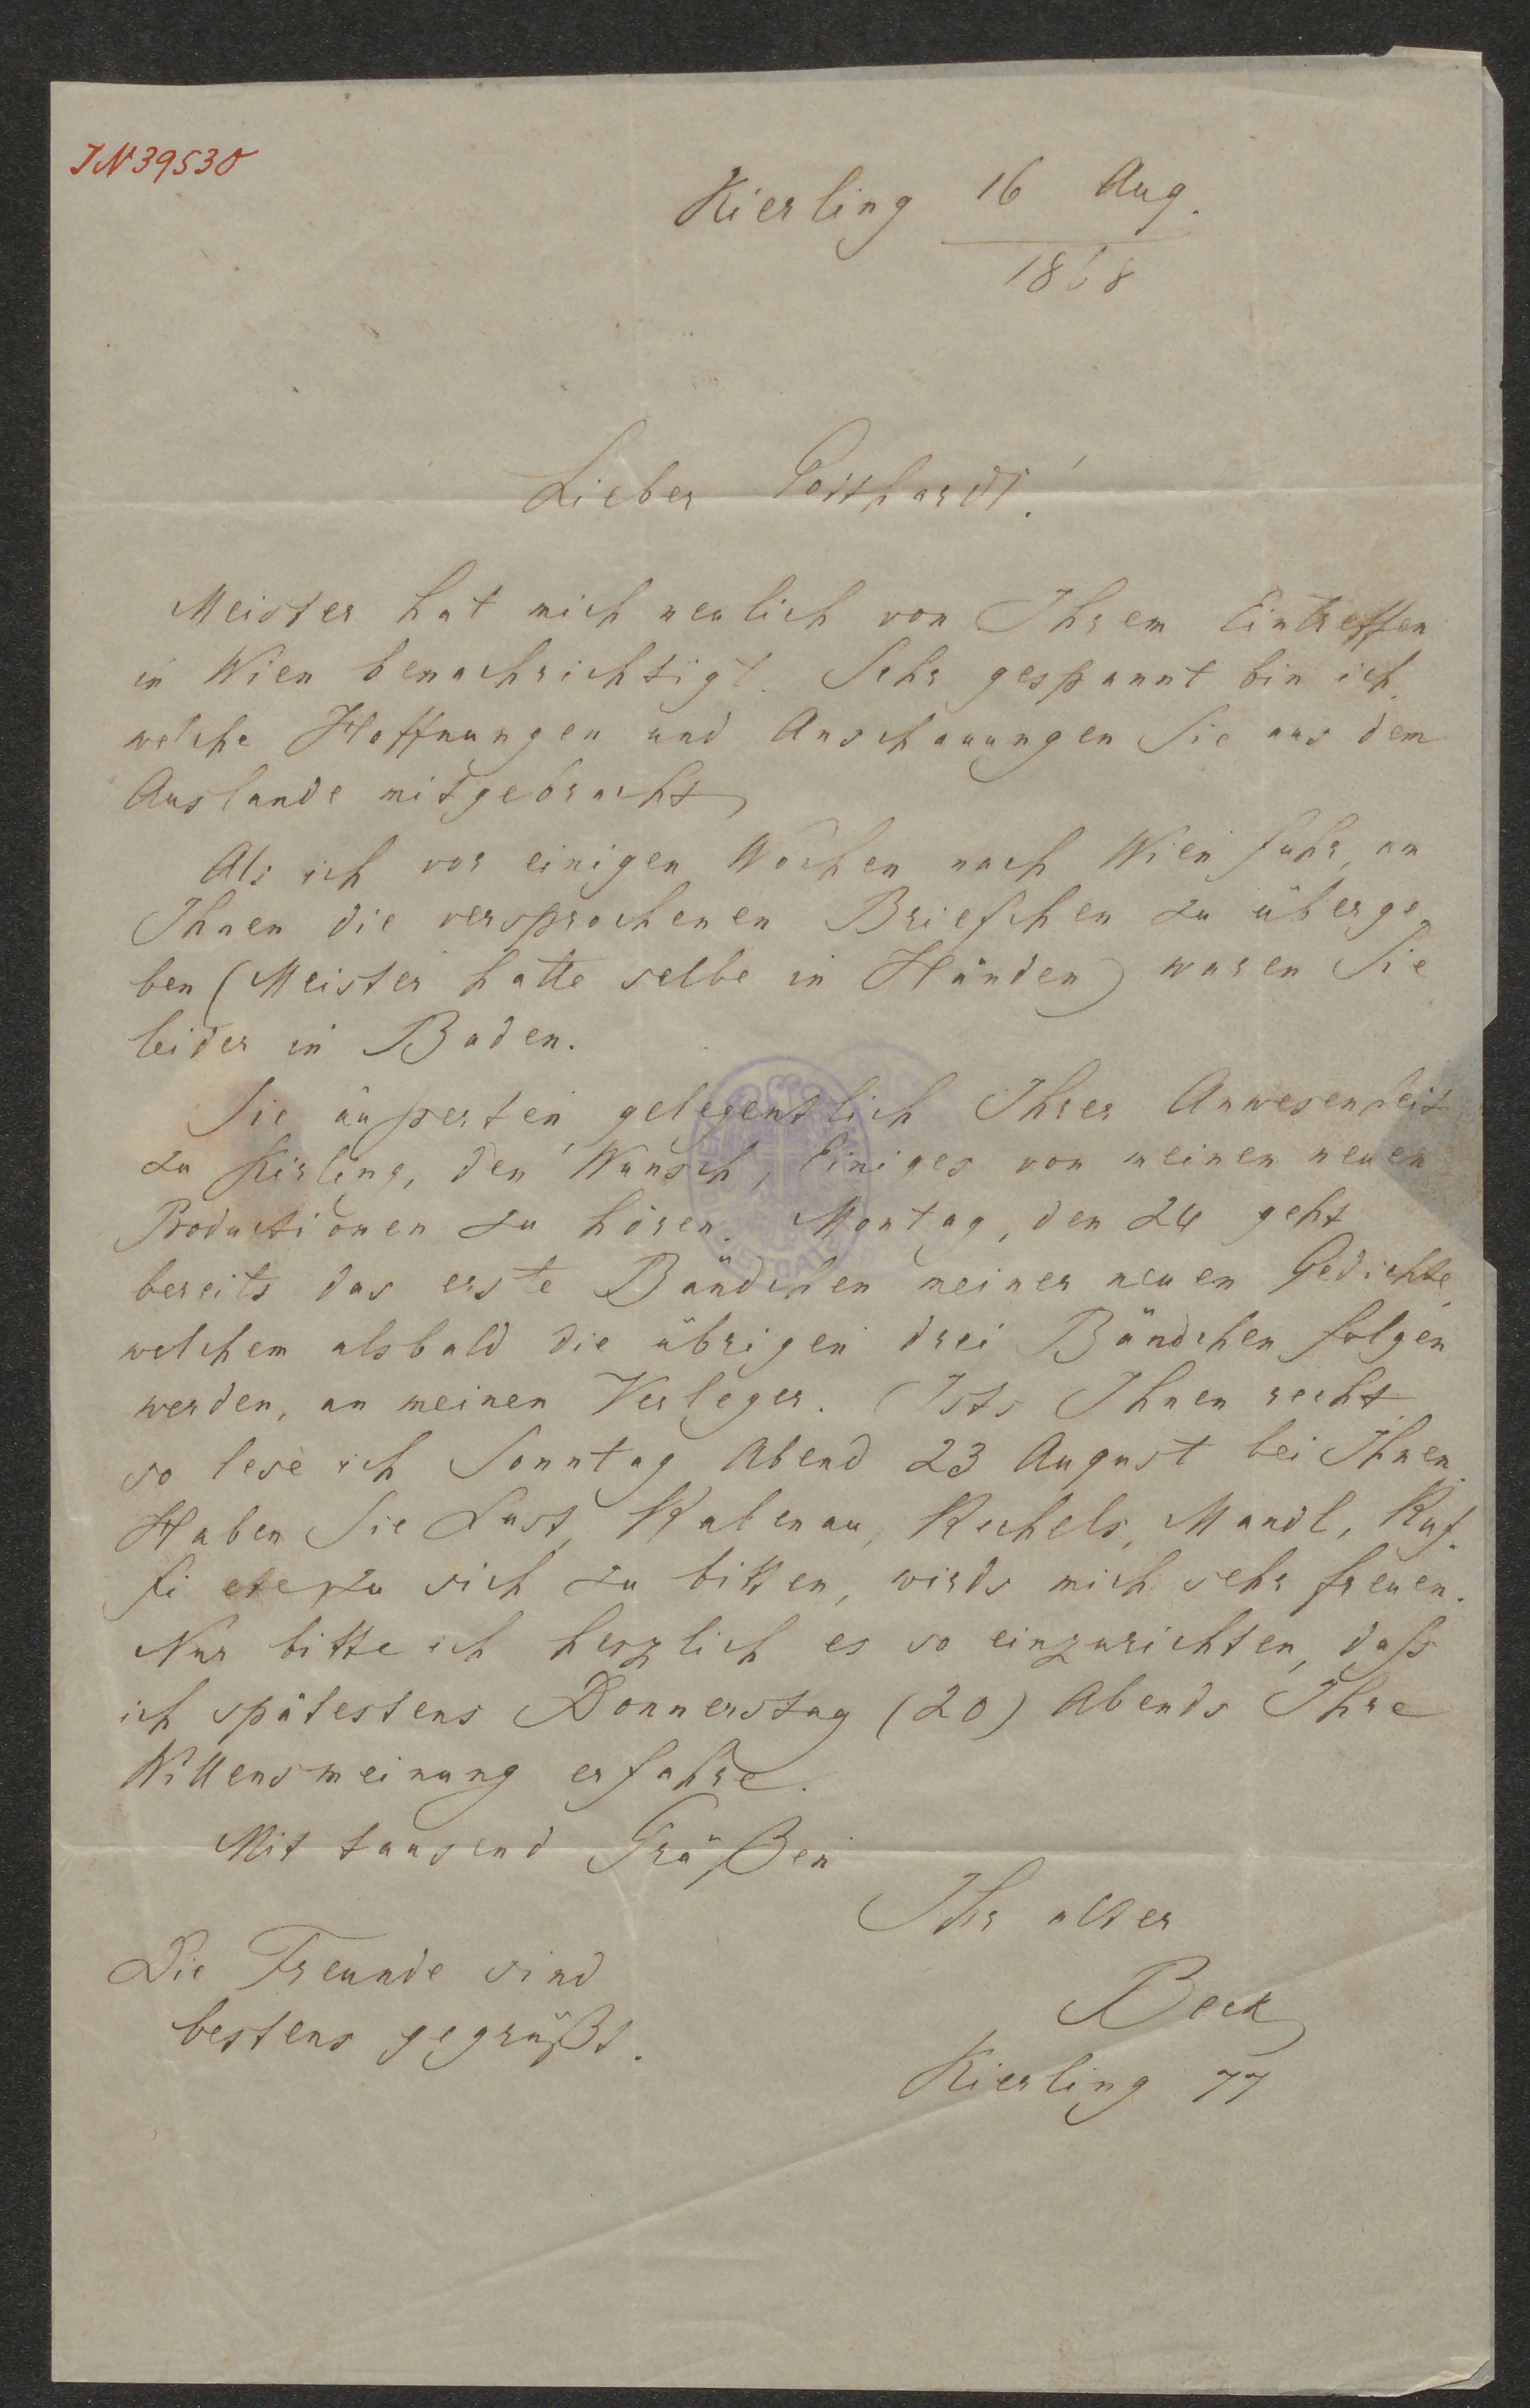 IN 39530
Kierling 16 Aug.
1868
Lieber Gotthardt!
Meister hat mich neulich von Ihrem Eintreffen
in Wien benachrichtigt. Sehr gespannt bin ich,
welche Hoffnungen und Anschauungen Sie aus dem
Auslande mitgebracht
Als ich vor einigen Wochen nach Wien fuhr, um
Ihnen die versprochenen Briefchen zu überge
ben (Meister hatte selbe in Händen) waren Sie
leider in Baden.
Sie äußerten, gelegentlich Ihrer Anwesenheit
zu Kirling, den Wunsch, Einiges von meinen neuen
Productionen zu hören. Montag, den 24 geht
bereits das erste Bändchen meiner neuen Gedichte,
welchem alsbald die übrigen drei Bändchen folgen
werden, an meinen Verleger. Ists Ihnen recht,
so lese ich Sonntag Abend 23 August bei Ihnen.
Haben Sie Lust, Mandl,
zu sich zu bitten, wirds mich sehr freuen.
Nur bitte ich herzlich es so einzurichten, daß
ich spätestens Donnerstag (20) Abends Ihre
Willensmeinung erfahre.
Mit tausend Grüßen
Ihr alter
Beck
Kierling 77
Die Freunde sind
bestens gegrüßt.